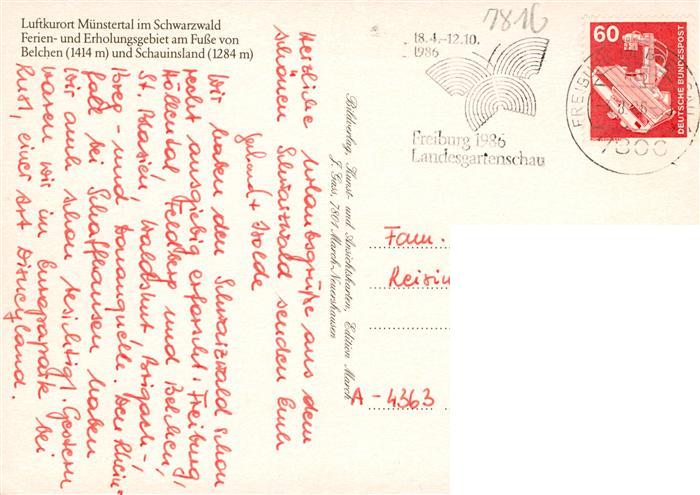 Luftkurort Münstertal im Schwarzwald
Ferien- und Erholungsgebiet am Fuße von
Belchen (1414 m) und Schauinsland (1284 m)
7816
18.4.-12.10.
1986
Freiburg 1986
Landesgartenschau
60
DEUTSCHE BUNDESPOST
FREIBURG
7800
Herzliche Urlaubsgrüße aus dem
schönen Schwarzwald senden Euch
Gerhard + Isolde
Wir haben den Schwarzwald schon
recht ausgiebig erforscht. Freiburg,
Höllental, Feldberg und Belchen,
St. Blasien, Waldshut, Brigach-,
Breg- und Donauquelle. Den Rhein-
fall bei Schaffhausen haben
wir auch schon besichtigt. Gestern
waren wir im Europapark bei
Rust, einer Art Disneyland.
Bildverlag, Kunst- und Ansichtskarten, Edition March
J. Gass, 7801 March-Neuershausen
Fam.
Reisin
A - 4363